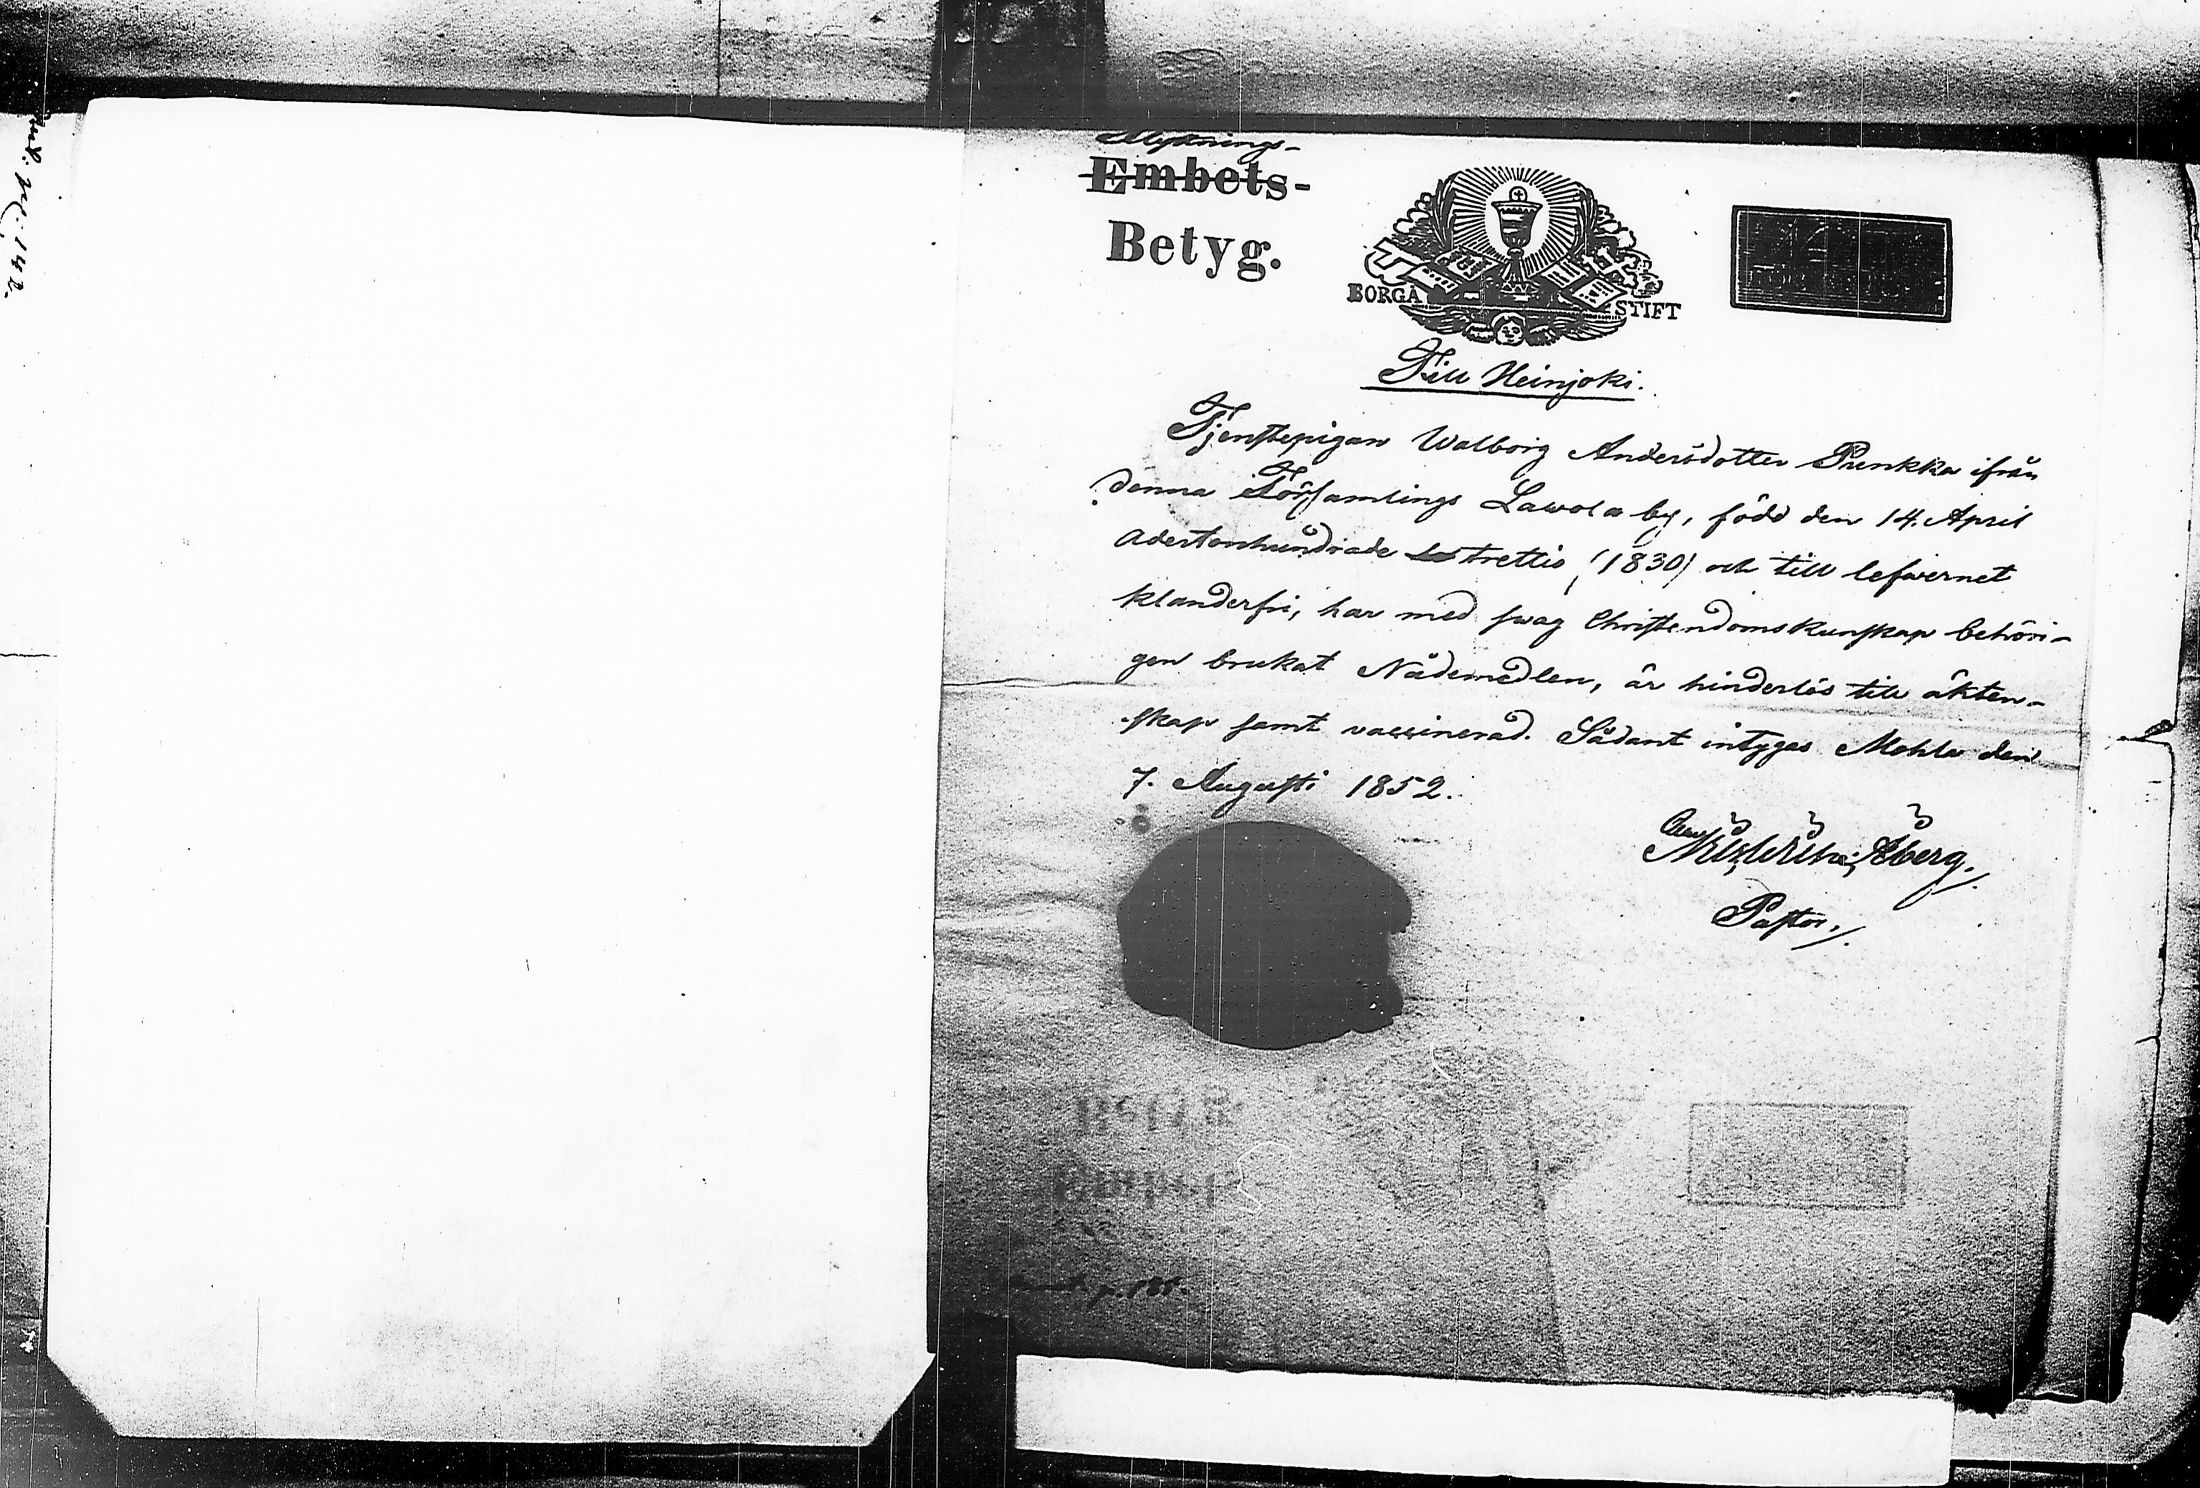 Flyttnings-
Embets-
Betyg.
BORGÅ STIFT
Till Heinjoki.
Tjenstepigan Walborg Andersdotter Punkka ifrån
denna Församlings Lawola by, född den 14. April
adertonhundrade trettio (1830) och till lefwernet
klanderfri, har med swag Christendomskunskap behöri-
gen brukat Nådemedlen, är hinderlös till äkten-
skap samt vaccinerad. Sådant intygas Mohla den
7. Augusti 1852.
Åberg.
Pastor.